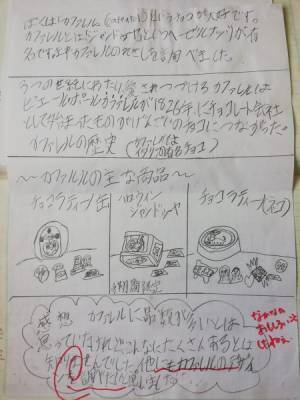 ぼくはカファレル(caffarel)というチョコが大好です。
カファレルとはジャンドゥーヤというヘーゼルナッツが有
名ですよ カファレルのれきしを調べました。
3つの世紀にわたり愛されつづけるカファレルは
ピエールポールカファレルが1826年にチョコレート会社
として始まったものがげんざいのチョコにつながった。
カファレルの歴史(カファレルは
イタリアの有名チョコ)
〜カファレルの主な商品〜
チョコラティーノ缶
ハロウィン
ジャンドゥーヤ
チョコラティーノ(ネコ)
期間限定
感想 カファレルに品数が多いとは
思っていたけれどこんなにたくさんあるとは
知りませんでした。他にもカファレルの
思いました。
なかなか
おもしろい